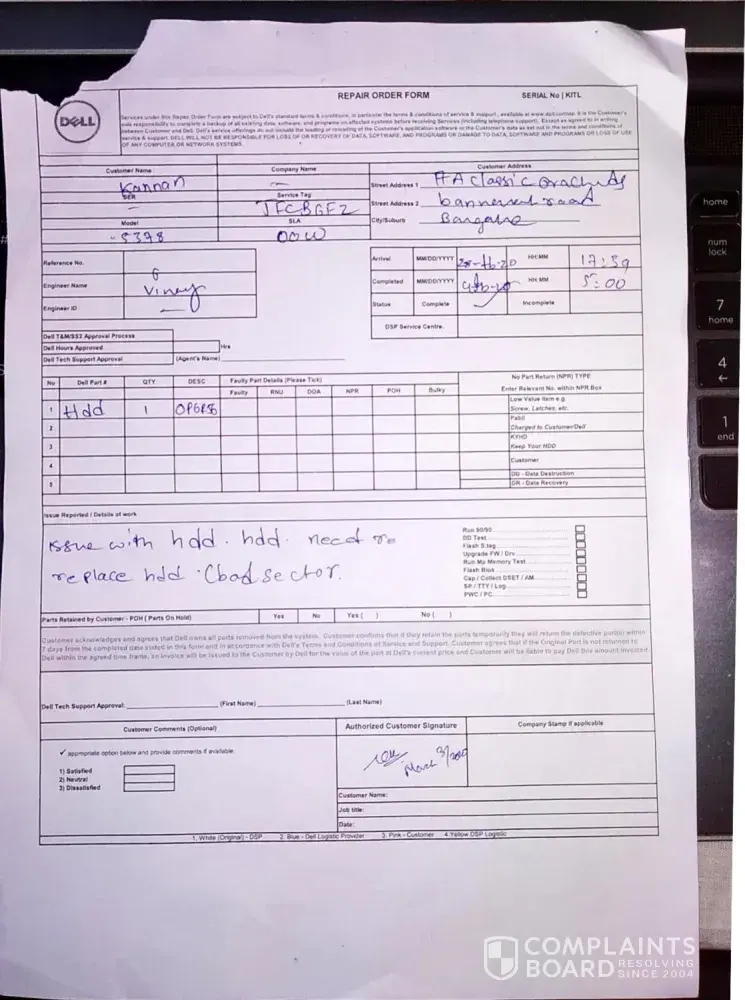 REPAIR ORDER FORM SERIAL No | KITL
DELL
Services under this Repair Order Form are subject to Dell's standard terms & conditions, in particular the terms & conditions of service & support, available at www.dell.com. It is the Customer's
sole responsibility to complete a backup of all existing data, software, and programs on affected systems before receiving Services (including telephone support). Except as agreed to in writing
between Customer and Dell, Dell's service offerings do not include the loading or reloading of the Customer's application software or the Customer's data as set out in the terms and conditions of
service & support. DELL WILL NOT BE RESPONSIBLE FOR LOSS OF OR RECOVERY OF DATA, SOFTWARE, AND PROGRAMS OR DAMAGE TO DATA, SOFTWARE AND PROGRAMS OR LOSS OF USE
OF ANY COMPUTER OR NETWORK SYSTEMS.
Customer Name Company Name Customer Address
Kannan Street Address 1
Service Tag
JFCBGF2 Street Address 2
Model SLA City/Suburb
5378 OOW
Reference No. Arrival MM/DD/YYYY HH:MM 17:59
Engineer Name Viney Completed MM/DD/YYYY HH:MM 5:00
Engineer ID Status Complete Incomplete
DSP Service Centre.
Dell T&M/SS2 Approval Process
Dell Hours Approved Hrs
Dell Tech Support Approval (Agent's Name)
No Dell Part # QTY DESC Faulty Part Details (Please Tick) No Part Return (NPR) TYPE
Faulty RNU DOA NPR POH Bulky Enter Relevant No. within NPR Box
1 Hdd 1 Low Value Item e.g.
Screw, Latches, etc.
2 Charged to Customer/Dell
3 KYHD
Keep Your HDD
4 Customer
5 DD - Data Destruction
DR - Data Recovery
Issue Reported / Details of work
issue with hdd. hdd. need to
replace hdd. (bad sector.
Run 90/90
DD Test
Flash S.tag
Upgrade FW / Drv
Run Mp Memory Test
Flash Bios
Cap / Collect DSET / AM
SP / TTY / Log
PWC / PC
Parts Retained by Customer - POH ( Parts On Hold) Yes No Yes ( ) No ( )
Customer acknowledges and agrees that Dell owns all parts removed from the system. Customer confirms that if they retain the parts temporarily they will return the defective part(s) within
7 days from the completed date stated in this form and in accordance with Dell's Terms and Conditions of Service and Support. Customer agrees that if the Original Part is not returned to
Dell within the agreed time frame, an invoice will be issued to the Customer by Dell for the value of the part at Dell's current price and Customer will be liable to pay Dell this amount invoiced
Dell Tech Support Approval: (First Name) (Last Name)
Customer Comments (Optional) Authorized Customer Signature Company Stamp if applicable
✓ appropriate option below and provide comments if available.
1) Satisfied
2) Neutral
3) Dissatisfied
Customer Name:
Job title:
Date:
1. White (Original) - DSP 2. Blue - Dell Logistic Provider 3. Pink - Customer 4. Yellow DSP Logistic
home
num
lock
7
home
4
←
1
end
COMPLAINTS
BOARD RESOLVING
SINCE 2004